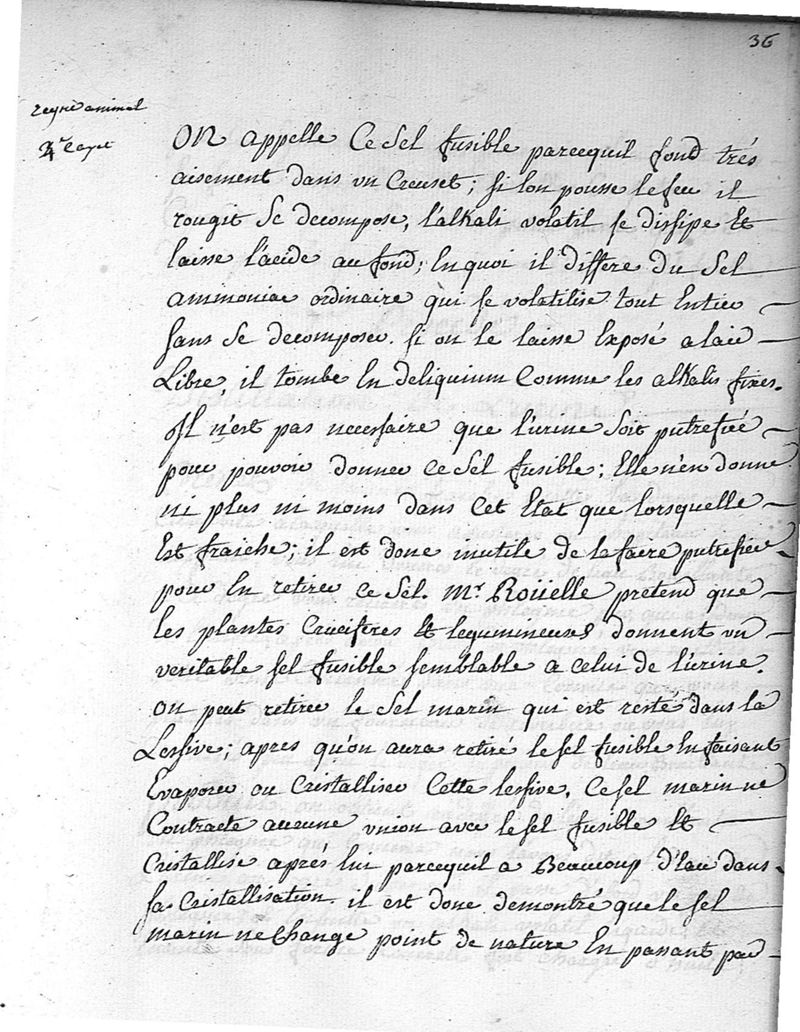 36
regne animal
ON appelle Ce Sel fusible parcequil fond trés
aisement dans un Creuset; si lon pousse le feu il
rougit Se decompose, l'alkali volatil se dissipe Et
laisse l'acide au fond; En quoi il differe du Sel
ammoniac ordinaire qui se volatilise tout Entier
sans Se decomposer. si on le laisse Exposé a lair
Libre, il tombe En deliquium Comme les alkalis fixes.
Il n'est pas necessaire que l'urine Soit putrefiée
pour pouvoir donner ce Sel fusible; Elle n'en donne
ni plus ni moins dans Cet Etat que lorsquelle
Est fraiche; il est donc inutile de la faire putrefier
pour En retirer ce Sel. Mr. Roüelle pretend que
les plantes Cruciferes Et legumineuses donnent un
veritable sel fusible semblable a celui de l'urine.
on peut retirer le Sel marin qui est resté dans la
Lessive; apres qu'on aura retiré le sel fusible En faisant
Evaporer ou Cristalliser Cette lessive. Ce sel marin ne
Contracte aucune union avec le sel fusible Et
Cristallise aprés lui parcequil a Beaucoup d'Eau dans
sa Cristallisation. il est donc demontré que le sel
marin ne Change point de nature En passant par